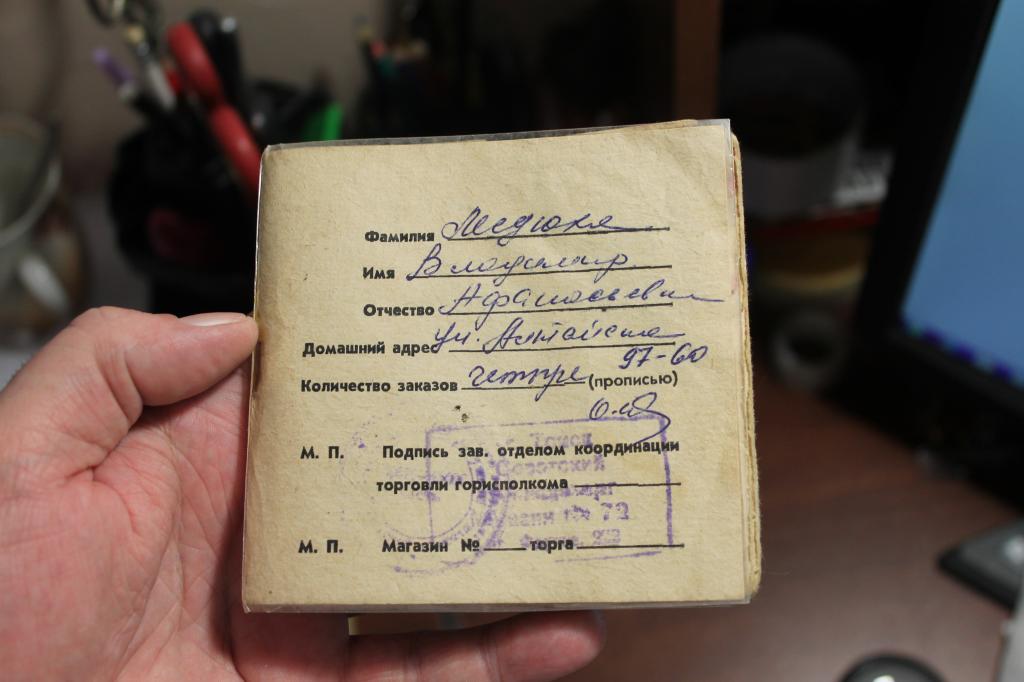 Фамилия Медюха
Имя Владимир
Отчество Афанасьевич
Домашний адрес ул. Алтайская
97-60
Количество заказов четыре (прописью)
М. П. Подпись зав. отделом координации
торговли горисполкома
М. П. Магазин № торга
г. Томск
Советский
№ 72